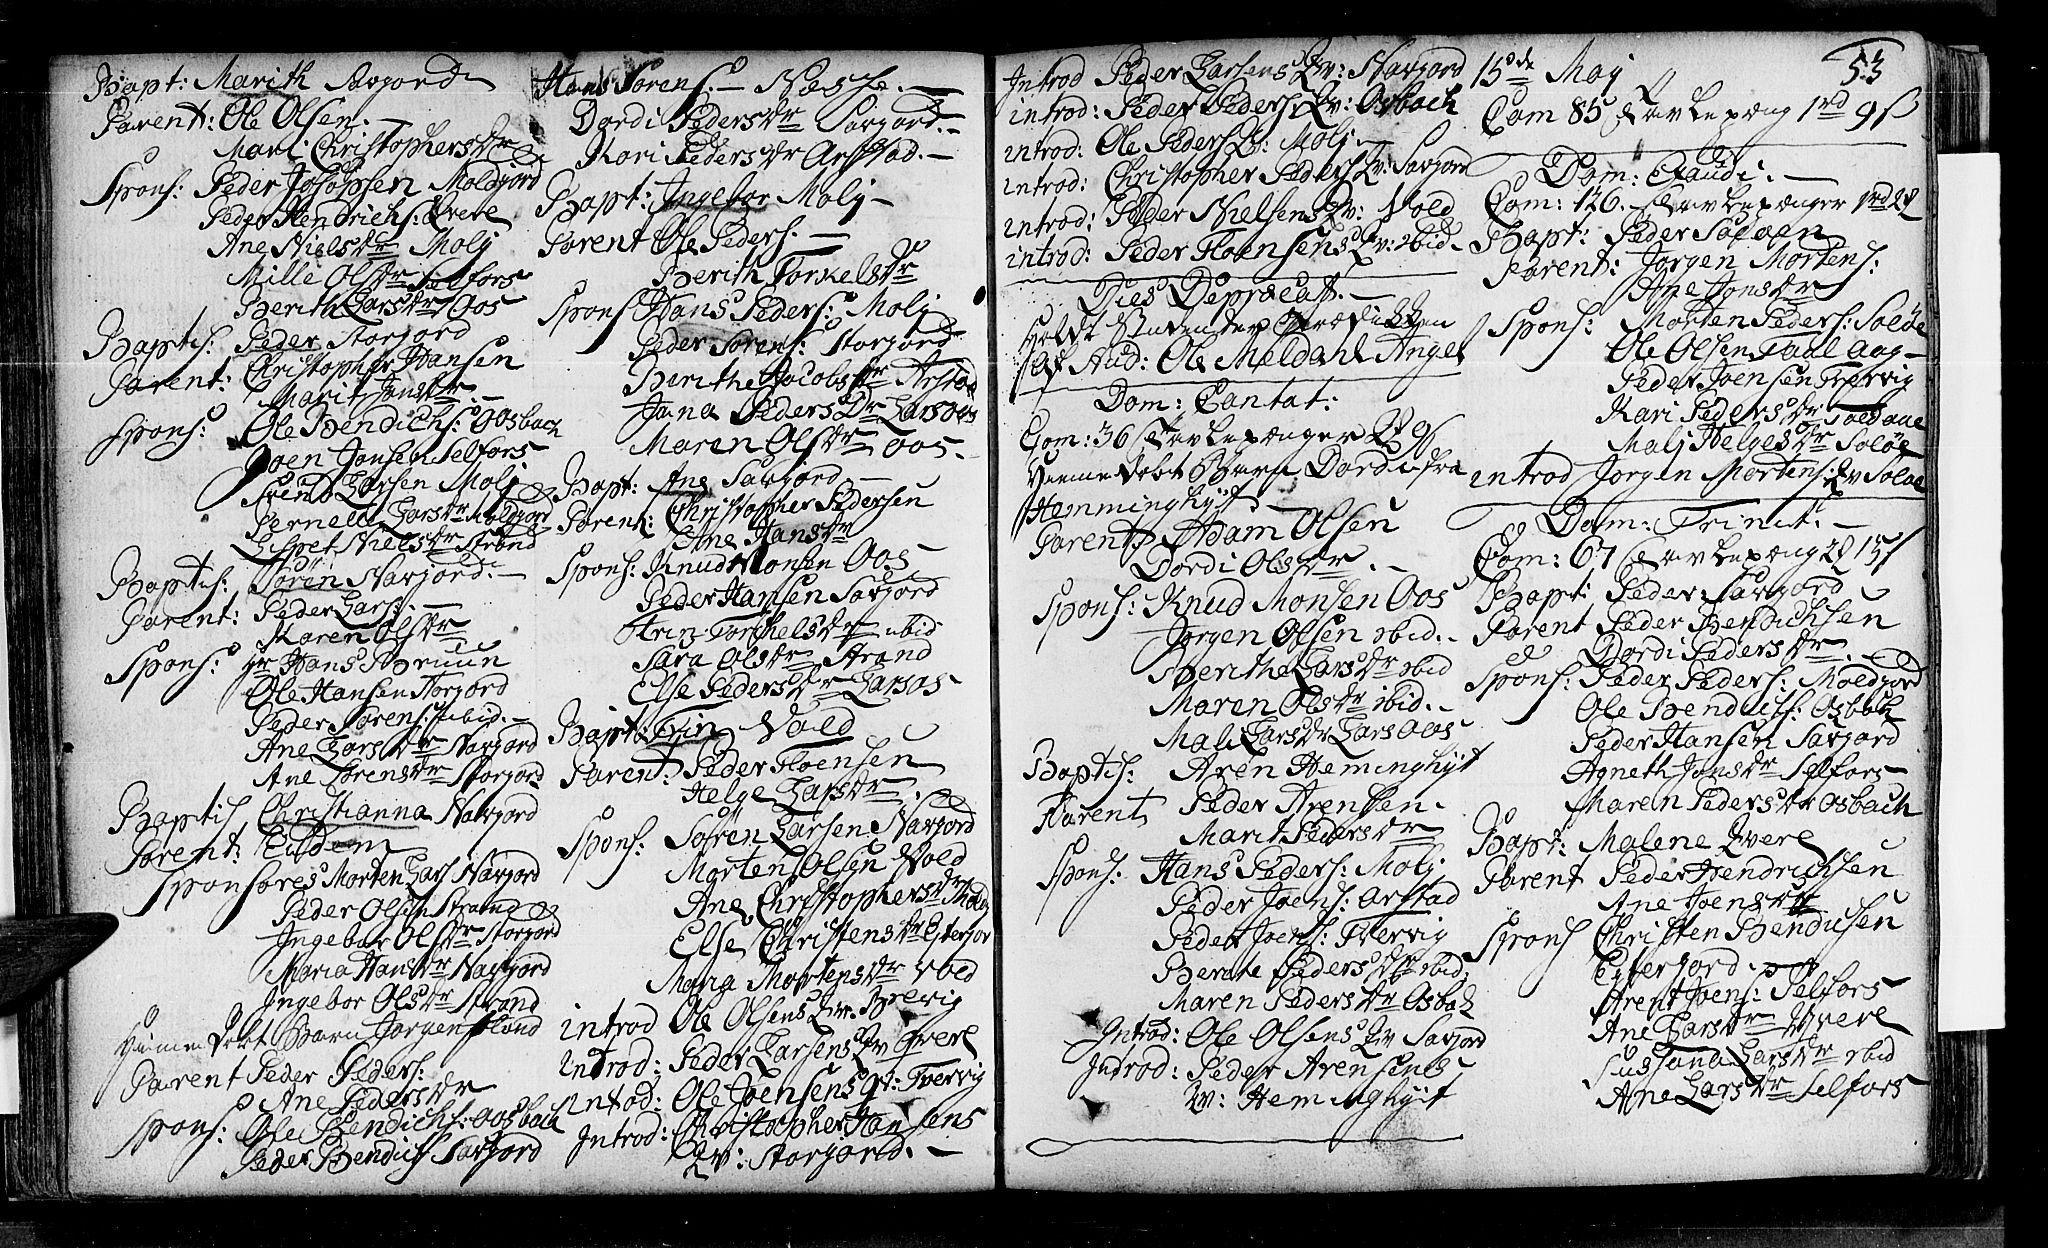 Bapt: Marith Savjord
Parent: Ole Olsen.
Mari Christophersdr
Spons: Peder Josopsen Moldjord
Peder Hendrichs: Evere
Ane Nielsdr Molj
Mille Olsdr Selfors
Berith Larsdr Oos
Baptis: Peder Storjord
Parent: Christopher Hansen
Marit Jonsdr
Spons: Ole Bendichs: Oosbach
Joen Jonsen Selfors
Svend Larsen Molj
Pernell Larsdr Moldjord
Lispet Nielsdr Strand
Baptis: Sören Navjord.
Parent: Peder Lars:
Karen Olsdr
Spons: Hr Hans Bruun
Ole Hansen Storjord
Peder Sörens: ibid.
Ane Larsdr Navjord
Ane Sörensdr Storjord
Baptis Christianna Navjord
Parent: Eidem
Sponsores Morten Lars Navjord
Peder Olsen Strand
Ingebor Olsdr Storjord
Maria Hansdr Navjord
Ingebor Olsdr Strand
Hiemme döbt Barn Jorgen
Parent Peder Peders:
Ane Pedersdr
Spons: Ole Bendichs: Oosbach
Peder Bendichs Savjord
Hans Sorens. Næsche.
Dordi Pedersdr Savjord.
Kari Pedersdr Arstad.
Bapt: Ingebor Molj
Parent Ole Peders.
Berith Torkelsdr
Spons Hans Peders: Molj
Peder Sorens: Storjord
Berithe Jacobsdr Arstad
Jana Pedersdr Larsoos
Maren Olsdr Oos.
Bapt: Ane Savjord
Parent: Christopher Pedersen
Ane Hansdr
Spons: Knud Monsen Oos
Peder Hansen Savjord
Trin Torchelsdr ibid
Sara Olsdr Strand
Else Pedersdr Larsos
Bapt: Trin Vold
Parent: Peder Floensen
Helge Larsdr.
Spons: Sören Larsen Navjord
Morten Olsen Vold
Ane Christophersdr
Else Christensdr Ejterjor
Maria Mortensdr Vold
introd Ole Olsens Qv. Brevig
introd: Peder Larsens Qv Evere
introd: Ole Joensens Qv: Tvervig
Introd: Christopher Hansens
Qv: Storjord.
53
Introd Peder Larsens Qv: Navjord
introd: Peder Peders: Qv: Osbach
introd: Ole Peders Qv: Molj
introd: Christopher Peders Qv: Savjord
introd: Peder Nielsens Qv: Vold
introd: Peder Floensens Qv: ibid.
Dies Deprecat.
af Aud: Ole Meldahl Angel
Dom: Cantat:
Com: 36 Tavlepænger
Hiemme döbt Barn Dordi fra
Hemminghÿt
Parent: Adam Olsen
Dordi Olsdr.
Spons: Knud Monsen Oos
Jorgen Olsen ibid.
Berithe Larsdr ibid
Maren Olsdr ibid.
Mali Larsdr Larsoos
Baptis: Aren Heminghÿt
Parent Peder Arensen.
Marit Pedersdr
Spons. Hans Peders: Molj
Peder Joens: Arstad
Peder Joens: Tvervig
Berete Pedersdr ibid.
Maren Pedersdr Osbach
Introd: Ole Olsens Qv Savjord
Introd: Peder Arensens
Qv: Heminghÿt
15de Maj
Com 85 Tavlepæng 1rd 9s
Dom: Exaudi.
Com: 126. Tavlepænger
Bapt: Peder Soloen
Parent: Jorgen Mortens:
Ane Jonsdr
Spons: Morten Peders: Solöe
Ole Olsen
Peder Joensen Tvervig
Kari Pedersdr
Malj Helgesdr Solöe
introd Jorgen Mortens: Qv Soloe
Dom: Trinit.
Com: 67 Tavlepæng
Bapt: Peder Savjord
Parent Peder Bendichsen
Dordi Pedersdr.
Spons: Peder Peders: Moldjord
Ole Bendichs: Osbach
Peder Hansen Savjord
Agneth Jonsdr Selfors
Maren Pedersdr Osbach
Bapt: Malene Evere
Parent Peder Hendrichsen
Ane Joensdr
Spons Christen Bendichsen
Ejterjord.
Arent Joens: Selfors
Ane Larsdr Evere
Sussana Larsdr ibid
Ane Larsdr Selfors